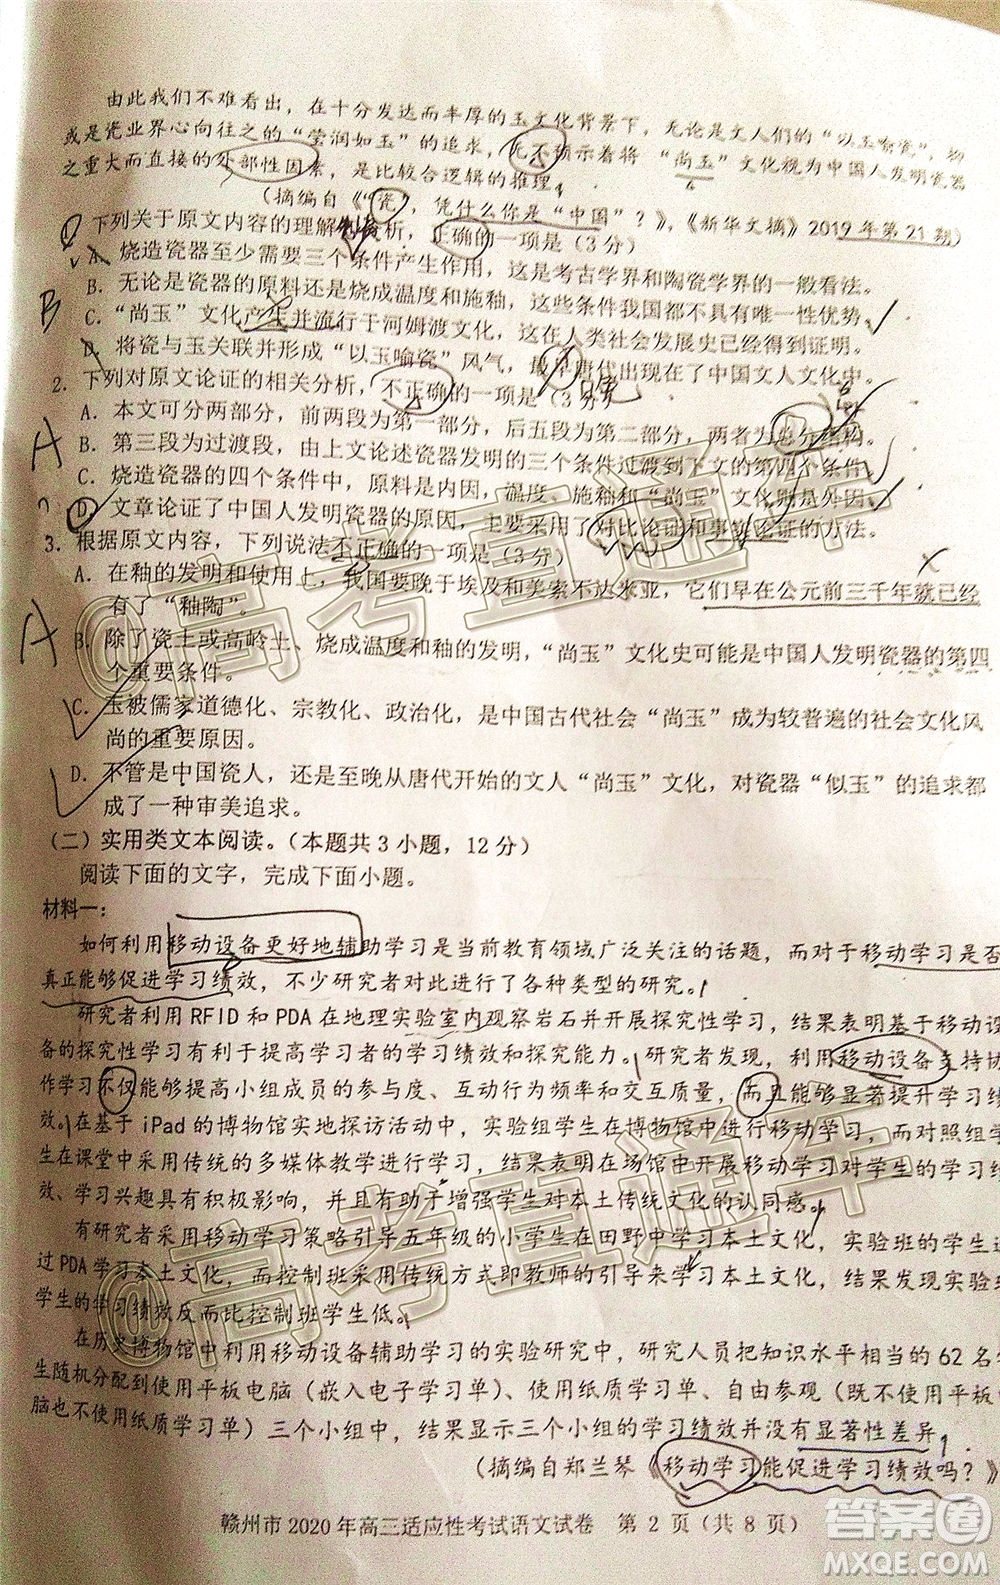 由此我们不难看出，在十分发达而丰厚的玉文化背景下，无论是文人们的“以玉喻瓷”，抑
或是瓷业界心向往之的“莹润如玉”的追求，无不预示着将“尚玉”文化视为中国人发明瓷器
之重大而直接的外部性因素，是比较合逻辑的推理。
（摘编自《“瓷”，凭什么你是“中国”？》，《新华文摘》2019年第21期）
1．下列关于原文内容的理解和分析，正确的一项是（3分）
A．烧造瓷器至少需要三个条件产生作用，这是考古学界和陶瓷学界的一般看法。
B．无论是瓷器的原料还是烧成温度和施釉，这些条件我国都不具有唯一性优势。
C．“尚玉”文化产生并流行于河姆渡文化，这在人类社会发展史已得到证明。
D．将瓷与玉关联并形成“以玉喻瓷”风气，最早唐代出现在了中国文人文化中。
2．下列对原文论证的相关分析，不正确的一项是（3分）
A．本文可分两部分，前两段为第一部分，后五段为第二部分，两者为总分结构。
B．第三段为过渡段，由上文论述瓷器发明的三个条件过渡到下文的第四个条件。
C．烧造瓷器的四个条件中，原料是内因，温度、施釉和“尚玉”文化则是外因。
D．文章论证了中国人发明瓷器的原因，主要采用了对比论证和事实论证的方法。
3．根据原文内容，下列说法不正确的一项是（3分）
A．在釉的发明和使用上，我国要晚于埃及和美索不达米亚，它们早在公元前三千年就已经
有了“釉陶”。
B．除了瓷土或高岭土、烧成温度和釉的发明，“尚玉”文化史可能是中国人发明瓷器的第四
个重要条件。
C．玉被儒家道德化、宗教化、政治化，是中国古代社会“尚玉”成为较普遍的社会文化风
尚的重要原因。
D．不管是中国瓷人，还是至晚从唐代开始的文人“尚玉”文化，对瓷器“似玉”的追求都
成了一种审美追求。
（二）实用类文本阅读。（本题共3小题，12分）
阅读下面的文字，完成下面小题。
材料一：
如何利用移动设备更好地辅助学习是当前教育领域广泛关注的话题，而对于移动学习是否
真正能够促进学习绩效，不少研究者对此进行了各种类型的研究。
研究者利用RFID和PDA在地理实验室内观察岩石并开展探究性学习，结果表明基于移动设
备的探究性学习有利于提高学习者的学习绩效和探究能力。研究者发现，利用移动设备支持协
作学习不仅能够提高小组成员的参与度、互动行为频率和交互质量，而且能够显著提升学习绩
效。在基于iPad的博物馆实地探访活动中，实验组学生在博物馆中进行移动学习，而对照组学
生在课堂中采用传统的多媒体教学进行学习，结果表明在场馆中开展移动学习对学生的学习绩
效、学习兴趣具有积极影响，并且有助于增强学生对本土传统文化的认同感。
有研究者采用移动学习策略引导五年级的小学生在田野中学习本土文化，实验班的学生通
过PDA学习本土文化，而控制班采用传统方式即教师的引导来学习本土文化，结果发现实验班
学生的学习绩效反而比控制班学生低。
在历史博物馆中利用移动设备辅助学习的实验研究中，研究人员把知识水平相当的62名学
生随机分配到使用平板电脑（嵌入电子学习单）、使用纸质学习单、自由参观（既不使用平板电
脑也不使用纸质学习单）三个小组中，结果显示三个小组的学习绩效并没有显著性差异。
（摘编自郑兰琴《移动学习能促进学习绩效吗？》）
赣州市2020年高三适应性考试语文试卷 第2页（共8页）
B
A
A
@高考直通车
@高考直通车
答案圈
MXQE.COM